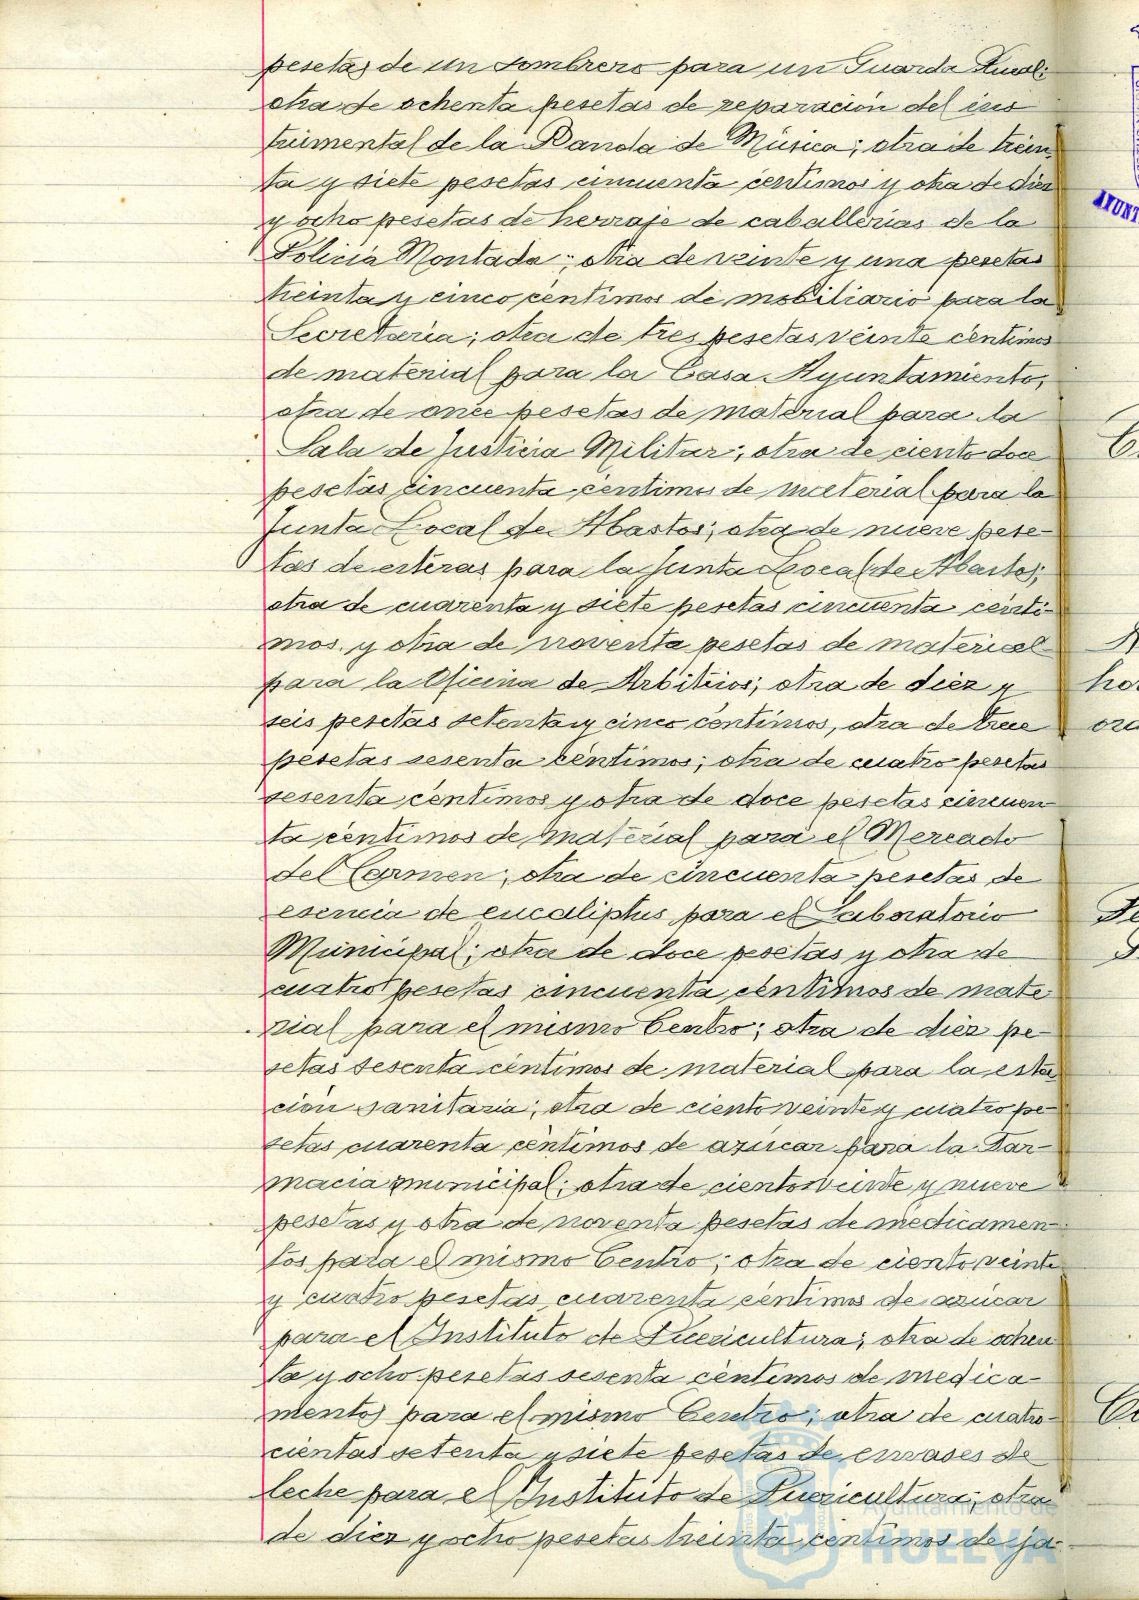 pesetas de un sombrero para un Guarda Rural;
otra de ochenta pesetas de reparación del ins
trumental de la Banda de Música; otra de trein-
ta y siete pesetas cincuenta céntimos y otra de diez
y ocho pesetas de herraje de caballerías de la
Policía Montada; otra de veinte y una pesetas
treinta y cinco céntimos de mobiliario para la
Secretaría; otra de tres pesetas veinte céntimos
de material para la Casa Ayuntamiento,
otra de once pesetas de material para la
Sala de Justicia Militar; otra de ciento doce
pesetas cincuenta céntimos de material para la
Junta Local de Abastos; otra de nueve pese-
tas de esteras para la Junta Local de Abastos;
otra de cuarenta y siete pesetas cincuenta cénti-
mos y otra de noventa pesetas de material
para la Oficina de Arbitrios; otra de diez y
seis pesetas setenta y cinco céntimos, otra de trece
pesetas sesenta céntimos; otra de cuatro pesetas
sesenta céntimos y otra de doce pesetas cincuen
ta céntimos de material para el Mercado
del Carmen; otra de cincuenta pesetas de
esencia de eucaliptus para el Laboratorio
Municipal; otra de doce pesetas y otra de
cuatro pesetas cincuenta céntimos de mate-
rial para el mismo Centro; otra de diez pe-
setas sesenta céntimos de material para la esta
ción sanitaria; otra de ciento veinte y cuatro pe-
setas cuarenta céntimos de azúcar para la Far-
macia municipal; otra de ciento veinte y nueve
pesetas y otra de noventa pesetas de medicamen-
tos para el mismo Centro; otra de ciento veinte
y cuatro pesetas cuarenta céntimos de azúcar
para el Instituto de Puericultura; otra de ochen
ta y ocho pesetas sesenta céntimos de medica-
mentos para el mismo Centro; otra de cuatro-
cientas setenta y siete pesetas de envases de
leche para el Instituto de Puericultura; otra
de diez y ocho pesetas treinta céntimos de ja-
Ayuntamiento de
HUELVA
AYUNT